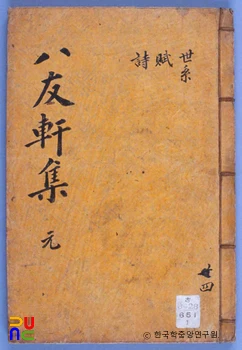 世系
賦
詩
八友軒集 元
共四
661
1
©한국학중앙연구원